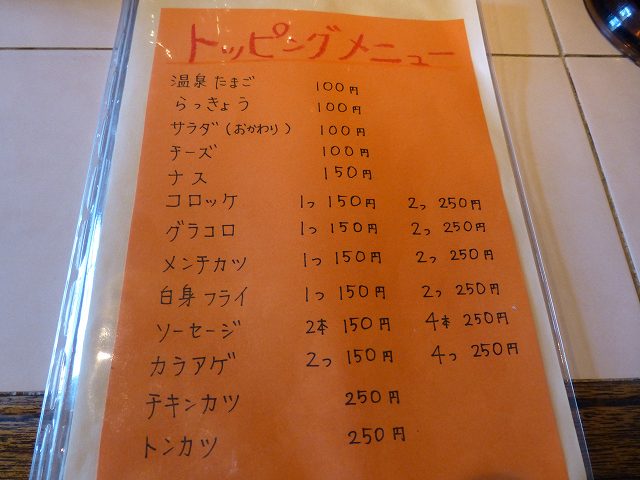 トッピングメニュー
温泉たまご 100円
らっきょう 100円
サラダ(おかわり) 100円
チーズ 100円
ナス 150円
コロッケ 1つ 150円 2つ 250円
グラコロ 1つ 150円 2つ 250円
メンチカツ 1つ 150円 2つ 250円
白身フライ 1つ 150円 2つ 250円
ソーセージ 2本 150円 4本 250円
カラアゲ 2つ 150円 4つ 250円
チキンカツ 250円
トンカツ 250円